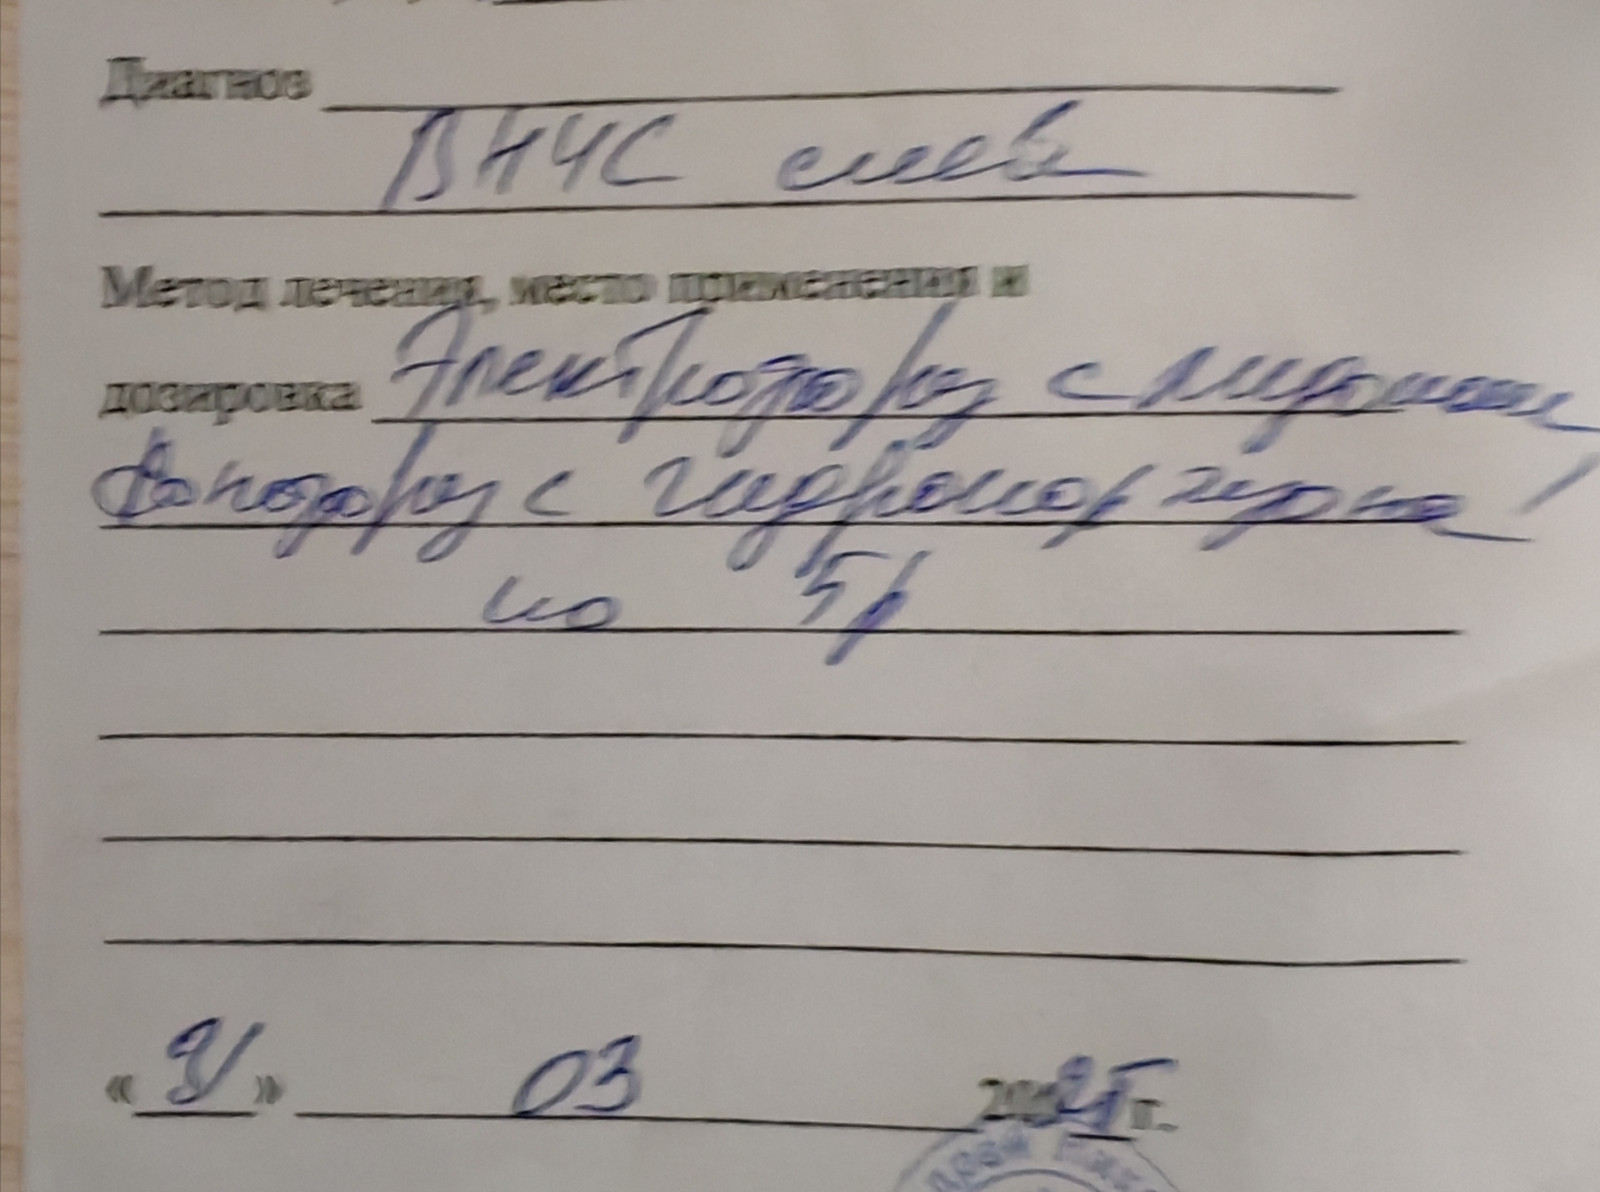 Диагноз
ВНЧС слева
Метод лечения, место применения и
дозировка Электрофорез с лидокаином
Фонофорез с гидрокортизоном
по 5р
«31» 03 2025 г.